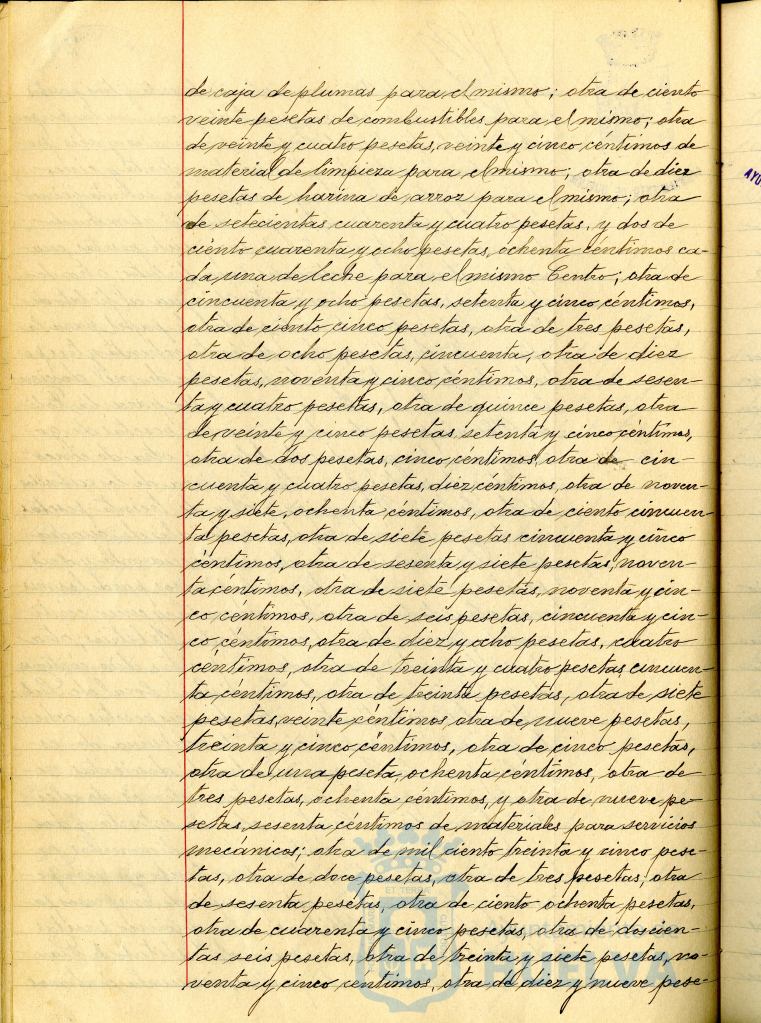 de caja de plumas para el mismo; otra de ciento
veinte pesetas de combustibles para el mismo; otra
de veinte y cuatro pesetas, veinte y cinco céntimos de
material de limpieza para el mismo; otra de diez
pesetas de harina de arroz para el mismo; otra
de setecientas cuarenta y cuatro pesetas, y dos de
ciento cuarenta y ocho pesetas, ochenta céntimos ca-
da una de leche para el mismo Centro; otra de
cincuenta y ocho pesetas, setenta y cinco céntimos,
otra de ciento cinco pesetas, otra de tres pesetas,
otra de ocho pesetas, cincuenta, otra de diez
pesetas, noventa y cinco céntimos, otra de sesen-
ta y cuatro pesetas, otra de quince pesetas, otra
de veinte y cinco pesetas setenta y cinco céntimos,
otra de dos pesetas, cinco céntimos, otra de cin-
cuenta y cuatro pesetas, diez céntimos, otra de noven-
ta y siete, ochenta céntimos, otra de ciento cincuen-
ta pesetas, otra de siete pesetas cincuenta y cinco
céntimos, otra de sesenta y siete pesetas, noven-
ta céntimos, otra de siete pesetas, noventa y cin-
co céntimos, otra de seis pesetas, cincuenta y cin-
co céntimos, otra de diez y ocho pesetas, cuatro
céntimos, otra de treinta y cuatro pesetas cincuen-
ta céntimos, otra de treinta pesetas, otra de siete
pesetas, veinte céntimos otra de nueve pesetas,
treinta y cinco céntimos, otra de cinco pesetas,
otra de una peseta, ochenta céntimos, otra de
tres pesetas, ochenta céntimos, y otra de nueve pe-
setas, sesenta céntimos de materiales para servicios
mecánicos; otra de mil ciento treinta y cinco pese-
tas, otra de doce pesetas, otra de tres pesetas, otra
de sesenta pesetas, otra de ciento ochenta pesetas,
otra de cuarenta y cinco pesetas, otra de doscien-
tas seis pesetas, otra de treinta y siete pesetas, no-
venta y cinco céntimos, otra de diez y nueve pese-
HUELVA
AYU